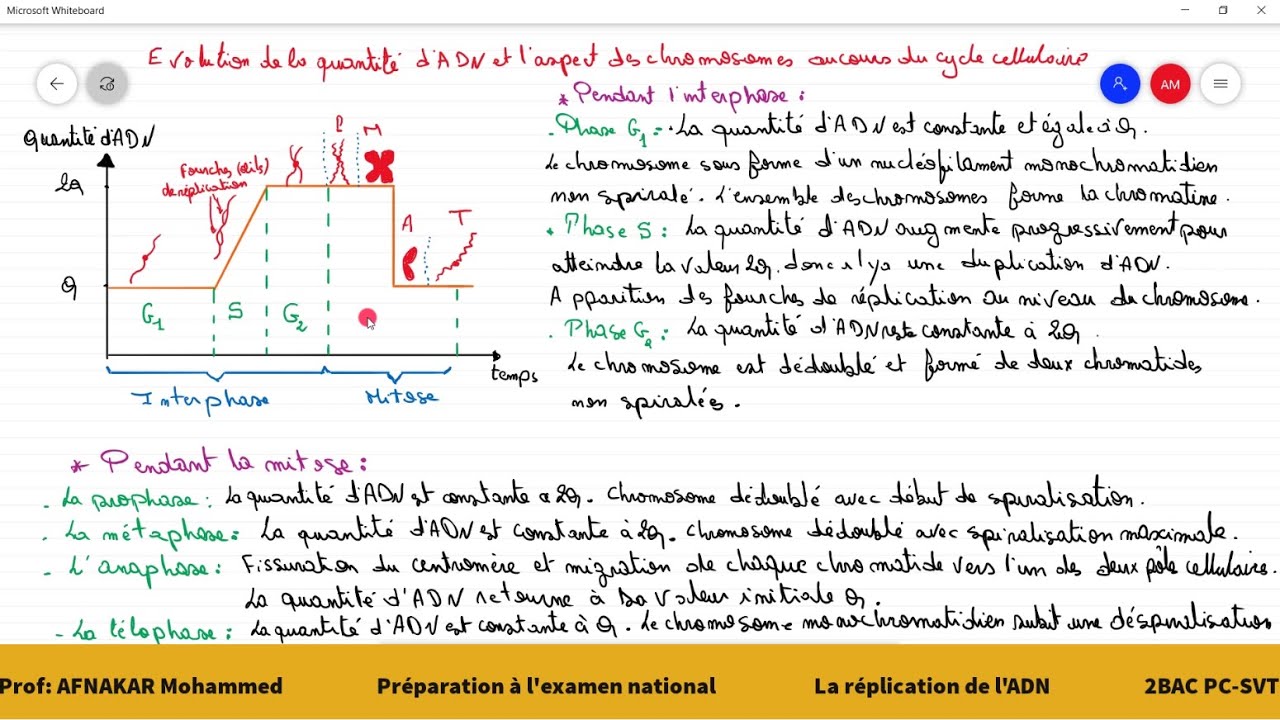 Microsoft Whiteboard
Evolution de la quantité d'ADN et l'aspect des chromosomes au cours du cycle cellulaire
AM
Quantité d'ADN
2Q
Q
Fourches (œils)
de réplication
P
M
A
T
G1
S
G2
temps
Interphase
Mitose
* Pendant l'interphase :
. Phase G1 : . La quantité d'ADN est constante et égale à Q.
Le chromosome sous forme d'un nucléofilament monochromatidien
non spiralé. L'ensemble des chromosomes forme la chromatine.
. Phase S : La quantité d'ADN augmente progressivement pour
atteindre la valeur 2Q. donc il y a une duplication d'ADN.
Apparition des fourches de réplication au niveau du chromosome.
. Phase G2 : La quantité d'ADN reste constante à 2Q.
Le chromosome est dédoublé et formé de deux chromatides
non spiralées.
* Pendant la mitose :
- La prophase : La quantité d'ADN est constante à 2Q. Chromosome dédoublé avec début de spiralisation.
- La métaphase : La quantité d'ADN est constante à 2Q. Chromosome dédoublé avec spiralisation maximale.
- L'anaphase : Fissuration du centromère et migration de chaque chromatide vers l'un des deux pôle cellulaire.
La quantité d'ADN retourne à sa valeur initiale Q.
- La télophase : La quantité d'ADN est constante à Q. Le chromosome monochromatidien subit une déspiralisation
Prof: AFNAKAR Mohammed
Préparation à l'examen national
La réplication de l'ADN
2BAC PC-SVT